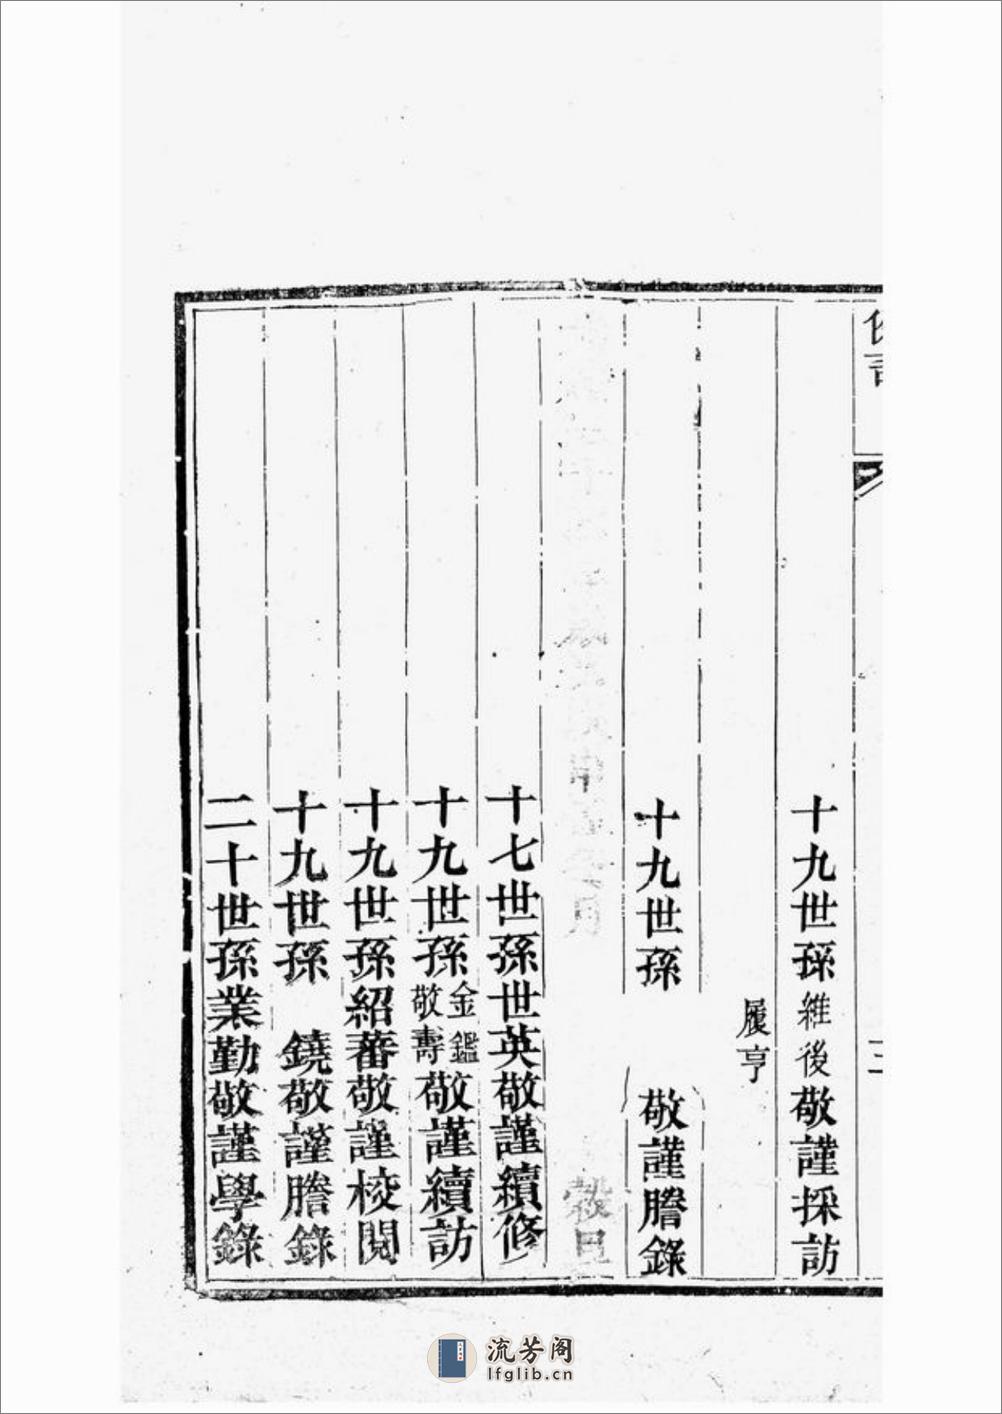 十九世孫維後敬謹採訪
履亨
十九世孫 敬謹謄錄
穀旦
十七世孫世英敬謹續修
十九世孫金鑑敬壽敬謹續訪
十九世孫紹蕃敬謹校閱
十九世孫 鐃敬謹謄錄
二十世孫業勤敬謹學錄
流芳阁
lfglib.cn